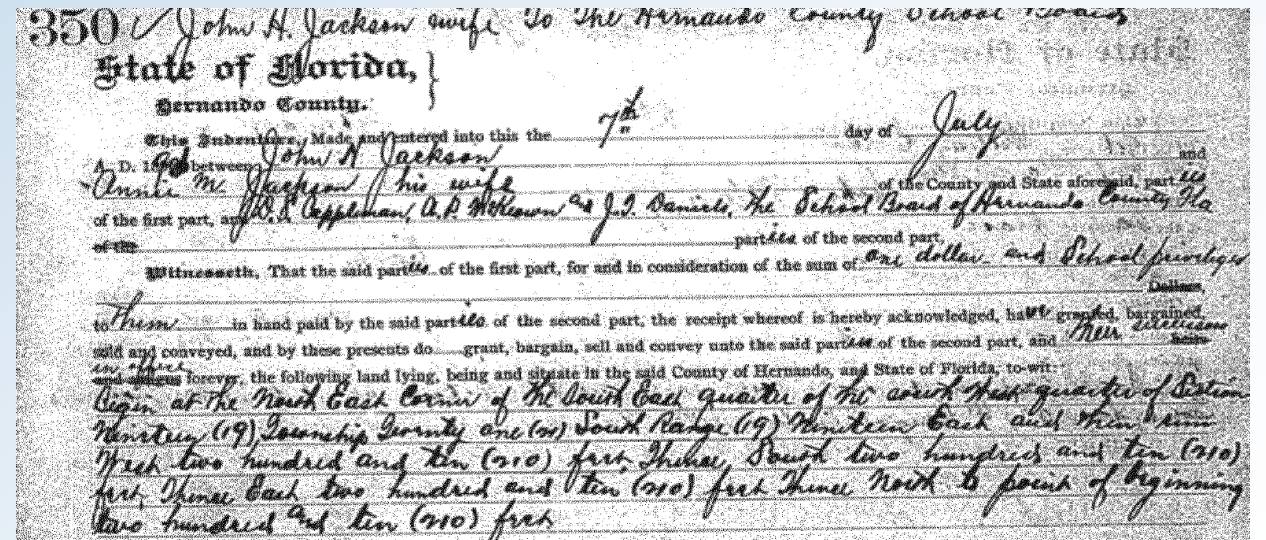 350 ✓ John H. Jackson wife To The Hernando County School Board
State of Florida,
Hernando County.
This Indenture, Made and entered into this the 7th day of July
A. D. 190 between John H Jackson and
Annie M. Jackson his wife of the County and State aforesaid, parties
of the first part, and Appleman, A. P. McKeown and J. T. Daniels, The School Board of Hernando County Fla
of the parties of the second part,
Witnesseth, That the said parties of the first part, for and in consideration of the sum of one dollar and School priviliges
Dollars,
to them in hand paid by the said parties of the second part, the receipt whereof is hereby acknowledged, have granted, bargained,
sold and conveyed, and by these presents do grant, bargain, sell and convey unto the said parties of the second part, and their successors heirs
in office
and assigns forever, the following land lying, being and situate in the said County of Hernando, and State of Florida, to-wit:
Begin at the North East Corner of the South East quarter of the south West quarter of Section
Nineteen (19), Township Twenty one (21) South Range (19) Nineteen East and then run
West two hundred and ten (210) feet, Thence South two hundred and ten (210)
feet, Thence East two hundred and ten (210) feet Thence North to point of beginning
two hundred and ten (210) feet